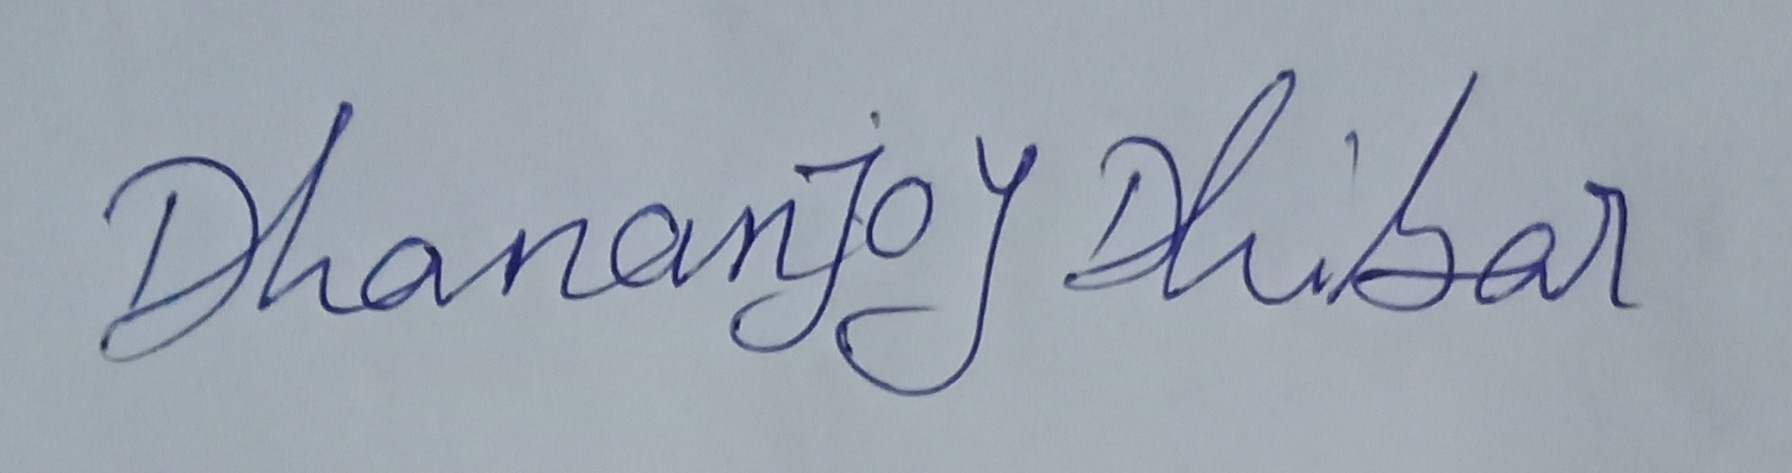 Dhananjoy Dhibar